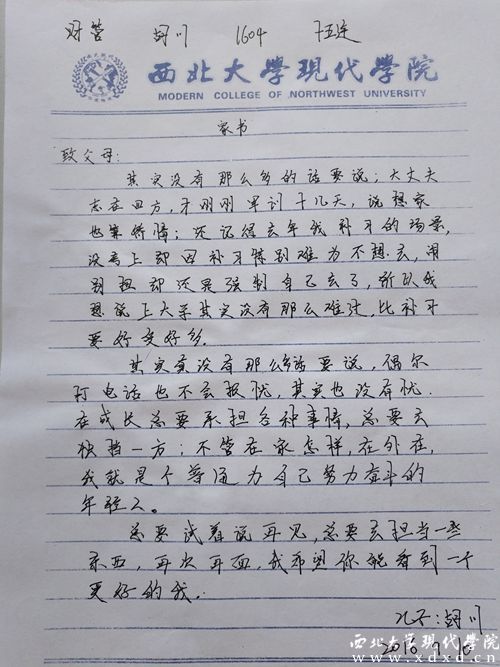 财管 胡川 1604 十五连
西北大学現代學院
MODERN COLLEGE OF NORTHWEST UNIVERSITY
家书
致父母:
其实没有那么多的话要说;大丈夫
志在四方,才刚刚军训十几天,说想家
也算矫情;还记得去年我补习的场景,
没考上那回补习特别难为不想去,闹
别扭却还是强制自己去了,所以我
想说上大学其实没有那么难过,比补习
要好受好多.
其实真没有那么多话要说,偶尔
打电话也不会报忧,其实也没有忧.
在成长总要承担各种事情,总要去
独挡一方;不管在家怎样,在外在,
我就是个普通为自己努力奋斗的
年轻人。
总要试着说再见,总要去担当一些
东西,再次再面,我希望你能看到一个
更好的我.
儿子:胡川
2016.9.10
西北大学现代学院
www.xdxd.cn